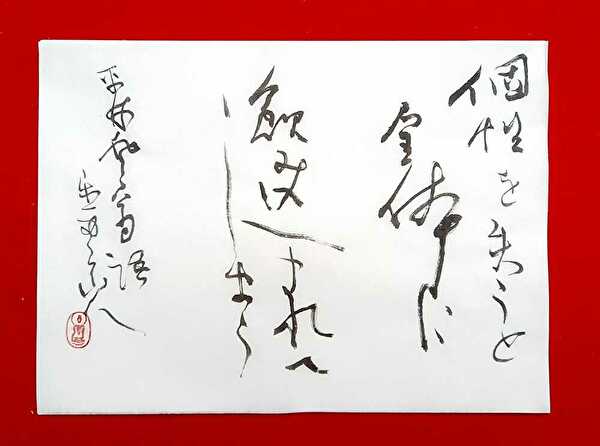 個性を失うと
全体に
飲み込まれて
しまう
平林
翁語